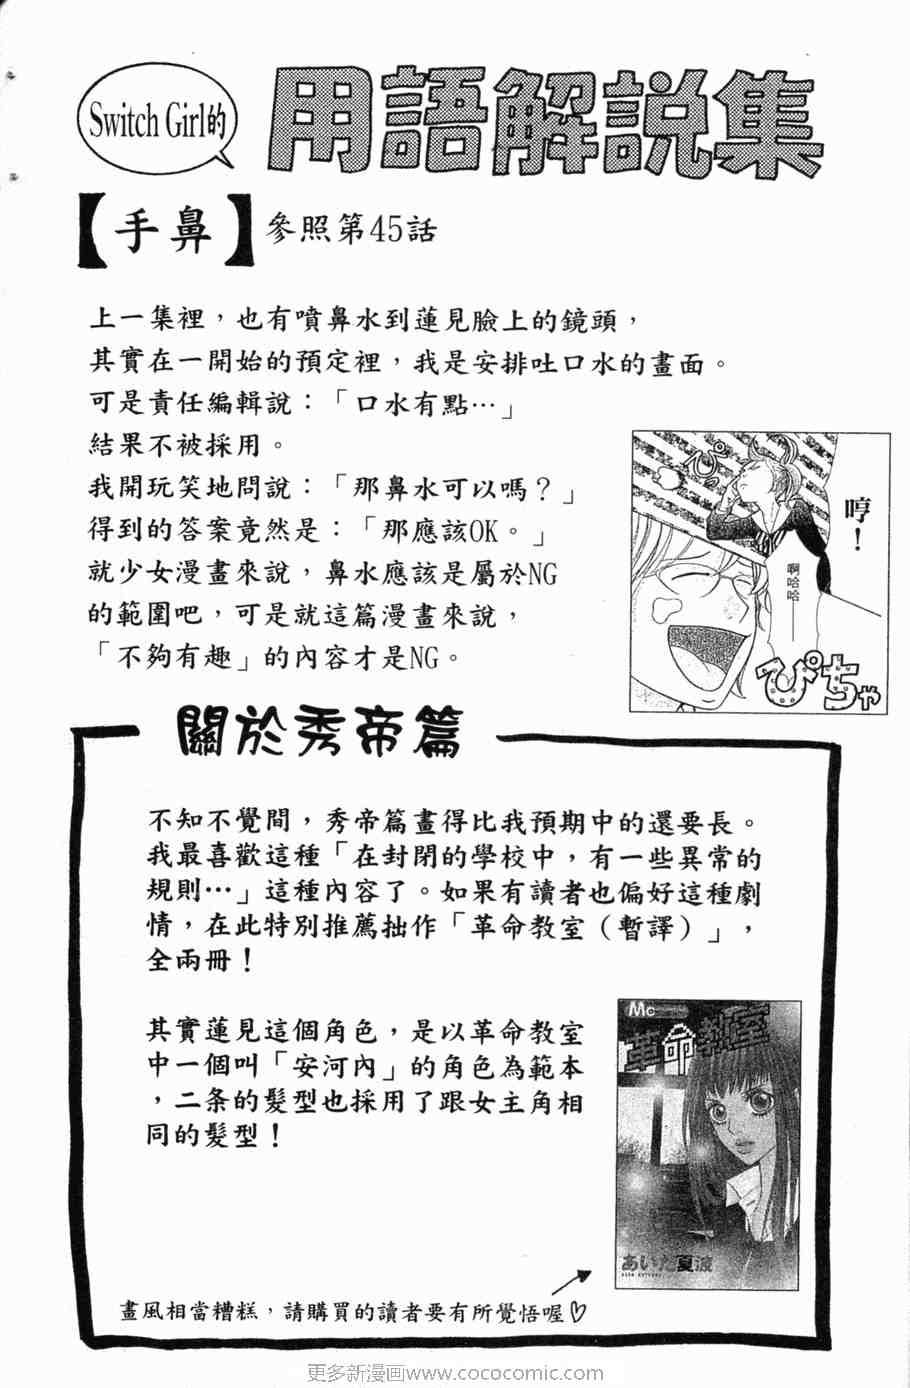 Switch Girl的
用語解説集
【手鼻】參照第45話
上一集裡，也有噴鼻水到蓮見臉上的鏡頭，
其實在一開始的預定裡，我是安排吐口水的畫面。
可是責任編輯說：「口水有點…」
結果不被採用。
我開玩笑地問說：「那鼻水可以嗎？」
得到的答案竟然是：「那應該OK。」
就少女漫畫來說，鼻水應該是屬於NG
的範圍吧，可是就這篇漫畫來說，
「不夠有趣」的內容才是NG。
ぴっ
哼！
啊哈哈——
ぴちゃ
關於秀帝篇
不知不覺間，秀帝篇畫得比我預期中的還要長。
我最喜歡這種「在封閉的學校中，有一些異常的
規則…」這種內容了。如果有讀者也偏好這種劇
情，在此特別推薦拙作「革命教室（暫譯）」，
全兩冊！
其實蓮見這個角色，是以革命教室
中一個叫「安河內」的角色為範本
，二条的髮型也採用了跟女主角相
同的髮型！
Mc
革命教室
あいだ夏波
畫風相當糟糕，請購買的讀者要有所覺悟喔♡
更多新漫画www.cococomic.com